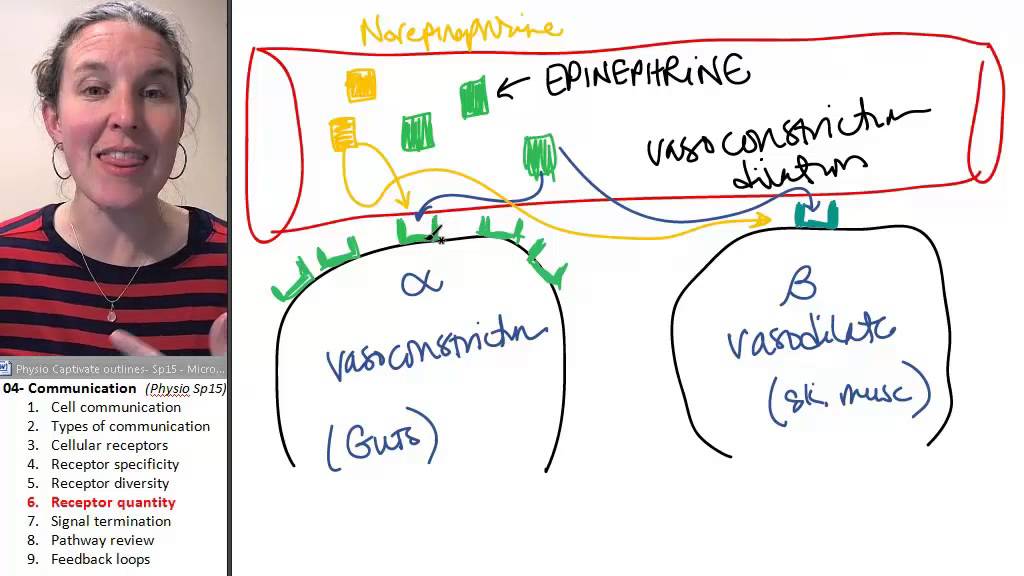 Norepinephrine
EPINEPHRINE
vasoconstriction
dilation
α
vasoconstriction
(GUTS)
β
vasodilate
(sk. musc)
Physio Captivate outlines- Sp15 - Micro...
04- Communication (Physio Sp15)
1. Cell communication
2. Types of communication
3. Cellular receptors
4. Receptor specificity
5. Receptor diversity
6. Receptor quantity
7. Signal termination
8. Pathway review
9. Feedback loops